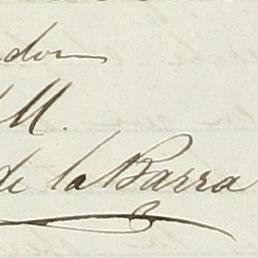 dor
M.
de la Barra